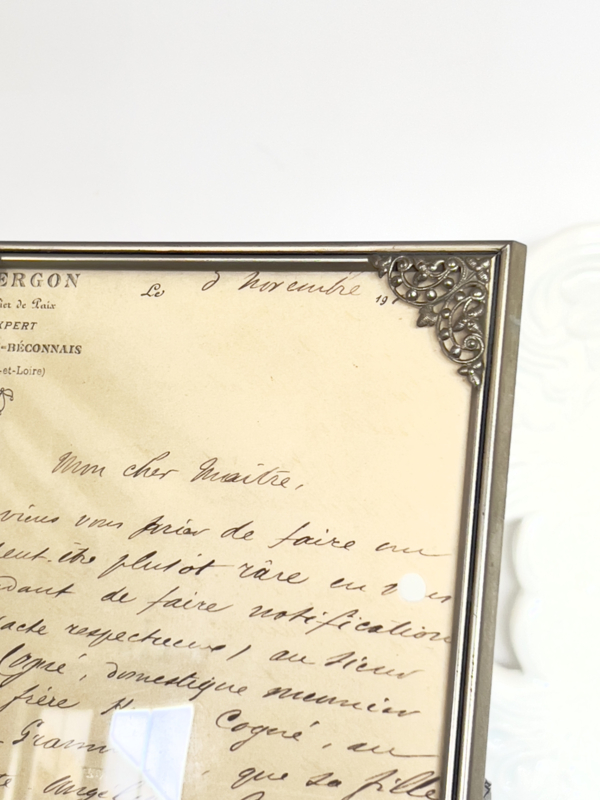 ERGON
Le 5 Novembre 19
ier de Paix
XPERT
-BÉCONNAIS
-et-Loire)
Mon cher Maître,
viens vous prier de faire un
peut-être plutôt râre en vous
dant de faire notification
(acte respectueux) au sieur
Cogné, domestique meunier
frère Cogné, au
que sa fille